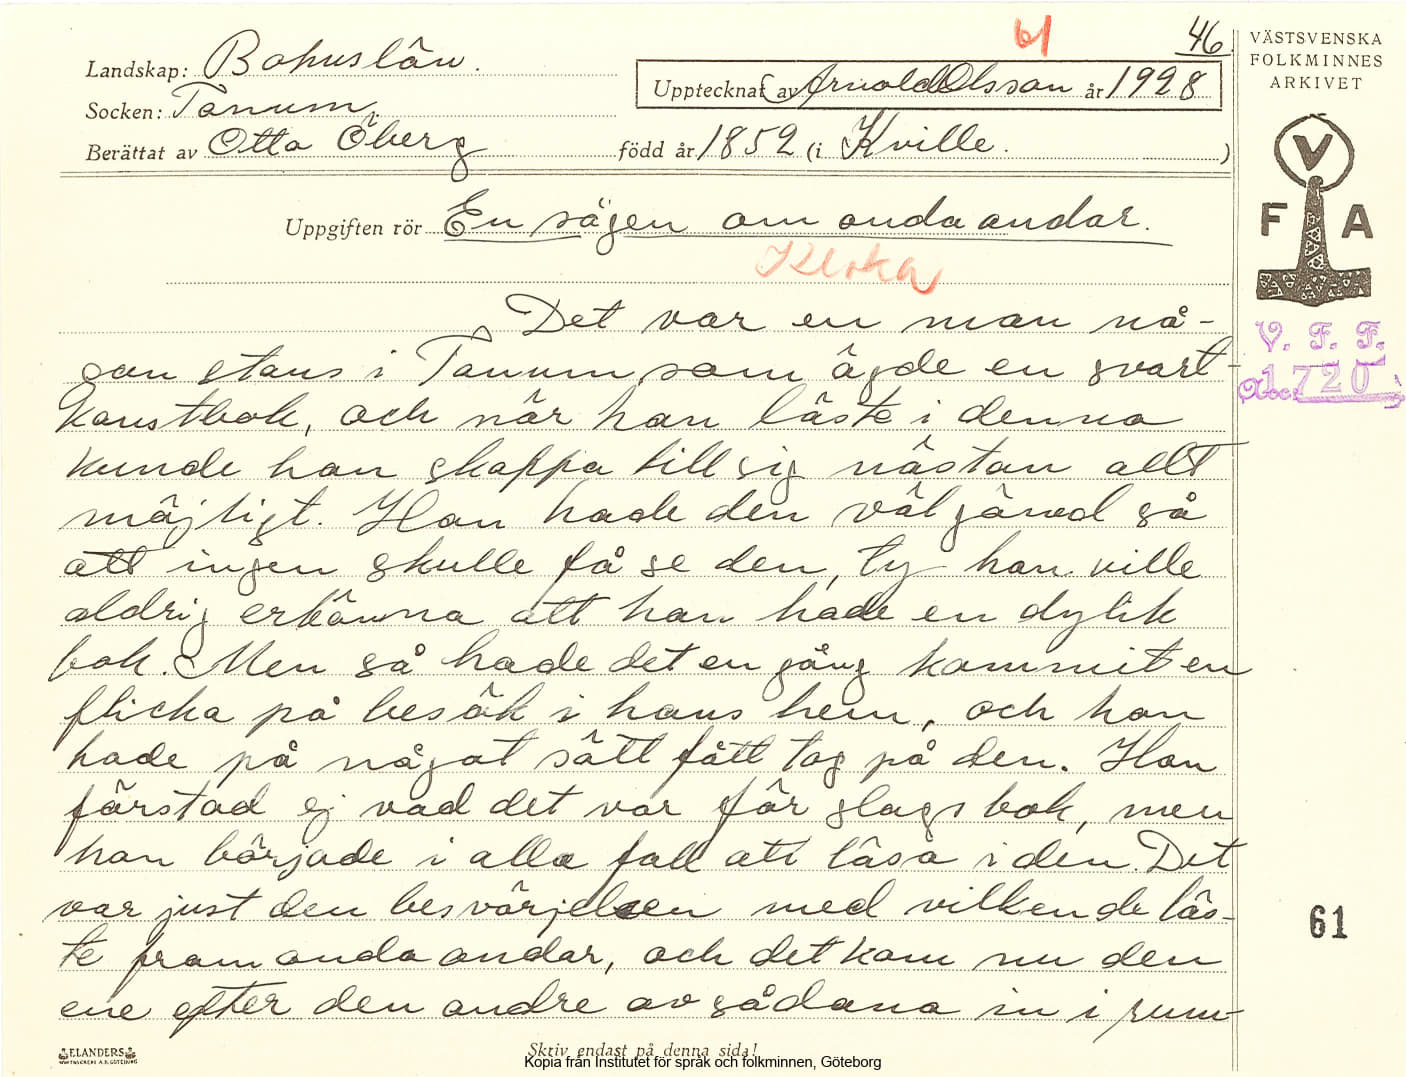 61
46.
Landskap: Bohuslän.
Socken: Tanum.
Berättat av Otto Öberg
Upptecknat av Arnold Olsson år 1928
född år 1852 (i Kville. )
VÄSTSVENSKA
FOLKMINNES
ARKIVET
V
F A
Uppgiften rör En sägen om onda andar.
Kloka
Det var en man nå-
gon stans i Tanum, som ägde en svart-
konstbok, och när han läste i denna
kunde han skaffa till sig nästan allt
möjligt. Han hade den väl gömd så
att ingen skulle få se den, ty han ville
aldrig erkänna att han hade en dylik
bok. Men så hade det en gång kommit en
flicka på besök i hans hem, och hon
hade på något sätt fått tag på den. Hon
förstod ej vad det var för slags bok, men
hon började i alla fall att läsa i den. Det
var just den besvärjelsen med vilken de läs-
te fram onda andar, och det kom nu den
ene efter den andre av sådana in i rum-
V. F. F.
Acc. 1720
61
ELANDERS
Skriv endast på denna sida!
Kopia från Institutet för språk och folkminnen, Göteborg